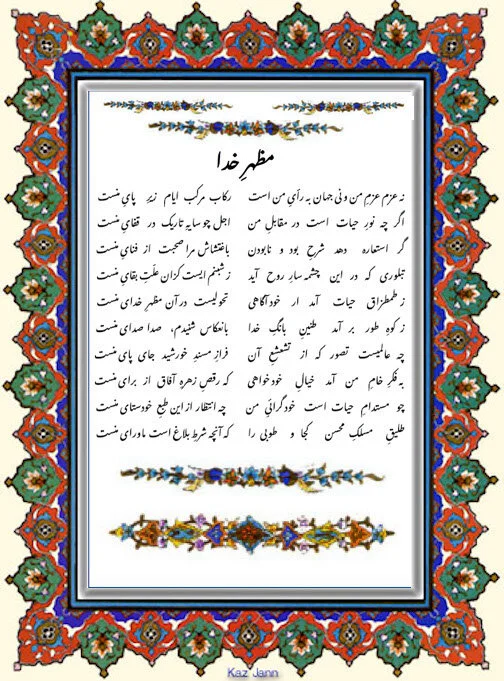 مظهرِ خدا
نه عزم عزمِ من و نی جهان به رأیِ من است رکاب مرکب ایام زیرِ پایِ منست
اگر چه نورِ حیات است در مقابلِ من اجل چو سایهِ تاریک در قفایِ منست
گر استعاره دهد شرحِ بود و نابودن باغتشاش مرا صحبت از فنایِ منست
تبلوری که در این چشمه سارِ روح آید ز شبنم ایست کزان علّتِ بقایِ منست
ز طمطراقِ حیات آمد ار خودآگاهی تحولیست در آن مظهرِ خدایِ منست
ز کوهِ طور بر آمد طنینِ بانگِ خدا بانعکاس شنیدم، صدا صدایِ منست
چه عالمیست تصور که از تشعشعِ آن فرازِ مسندِ خورشید جایِ پایِ منست
به فکرِ خامِ من آمد خیالِ خودخواهی که رقصِ زهره آفاق از برایِ منست
چو مستدامِ حیات است خودگرائیِ من چه انتظار از این طبعِ خودستایِ منست
طلیقِ مسلکِ محسن کجا و طوبی را که آنچه شرطِ بلاغ است ماورایِ منست
Kaz Jann